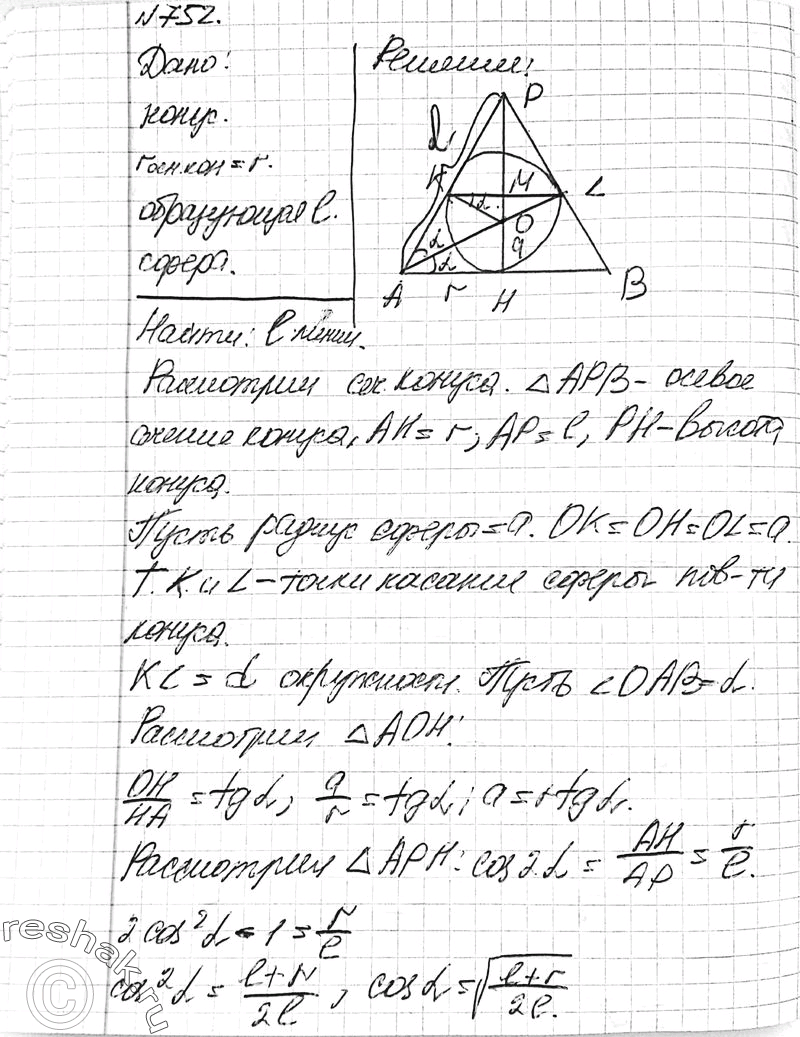 №752.
Дано:
конус.
rосн.кон = r.
образующая l.
сфера.
Найти: l линии.
Решение:
P
l
K
M
L
α
O
α
α
a
A
r
H
B
Рассмотрим сеч. конуса. △APB – осевое
сечение конуса, AH = r; AP = l, PH – высота
конуса.
Пусть радиус сферы = a. OK = OH = OL = a.
т. K и L – точки касание сферы пов-ти
конуса.
KL = d окружности. Пусть ∠OAB = α.
Рассмотрим △AOH:
OH/HA = tgα, a/r = tgα; a = r tgα.
Рассмотрим △APH: cos2α = AH/AP = r/l.
2cos²α - 1 = r/l
cos²α = l+r/2l, cosα = √l+r/2l.
reshak.ru
©